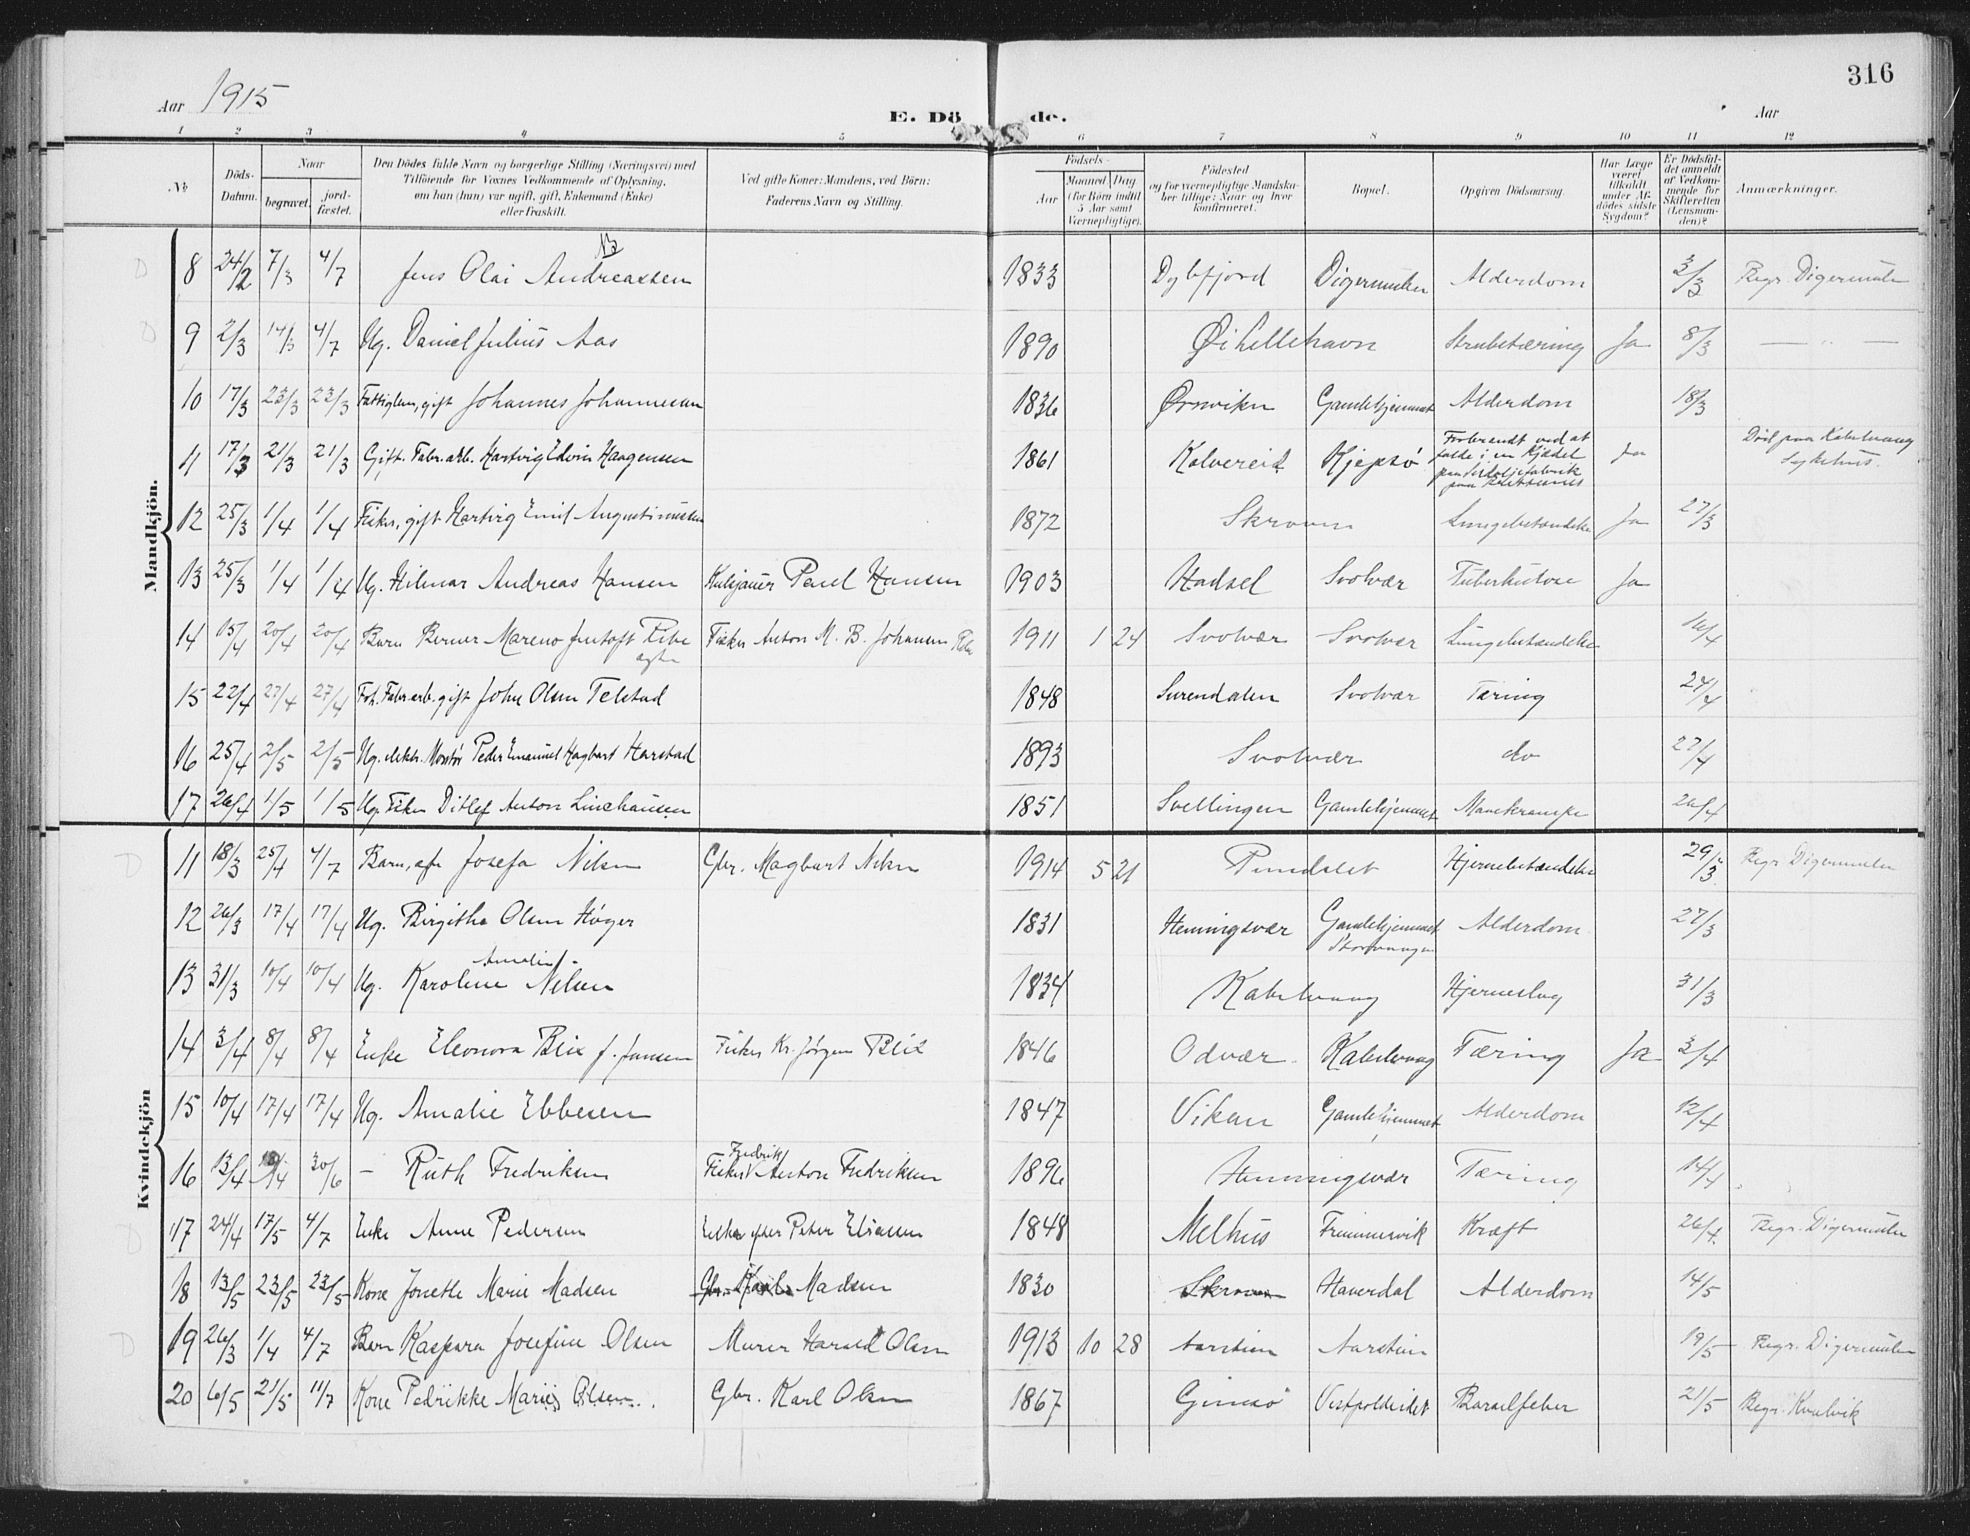 316
Aar 1915
E. Dö de.
Aar
1 2 3 4 5 6 7 8 9 10 11 12
No
Döds-Datum.
Naar
begravet.
jord-fæstet.
Den Dödes fulde Navn og borgerlige Stilling (Næringsvei) med
Tilföiende for Voxnes Vedkommende af Oplysning,
om han (hun) var ugift, gift, Enkemand (Enke)
eller fraskilt.
Ved gifte Koner: Mandens, ved Börn:
Faderens Navn og Stilling.
Födsels-
Aar
Maaned Dag
(for Börn indtil
5 Aar samt
Værnepligtige).
Födested
og for værnepligtige Mandska-
ber tillige: Naar og hvor
konfirmeret.
Bopæl.
Opgiven Dödsaarsag.
Har Læge
været
tilkaldt
under Af-
dödes sidste
Sygdom?
Er Dödsfal-
det anmeldt
af Vedkom-
mende for
Skifteretten
(Lensman-
den)?
Anmærkninger.
Mandkjön.
8 24/2 7/3 4/7 Jens Olai Andreassen 1833 Dybfjord Digermulen Alderdom 3/3 Begr. Digermulen
9 2/3 14/3 4/7 Ug. Daniel Julius Aas 1890 Øihellehavn Strubetæring Ja 8/3 — " —
10 17/3 23/3 23/3 Fattiglem, gift Johannes Johannesen 1836 Ørsviken Gamlehjemmet Alderdom 18/3
11 17/3 21/3 21/3 Gift. Fabr.arb. Hartvig Edvin Haagensen 1861 Kalvereid Kjeøsø Forbrandt ved at falde i en Kjædel paa Sildoljefabrik paa Ja Død paa Kabelvaag Sykehus.
12 25/3 1/4 1/4 Fisker, gift Hartvig Emil Augustinussen 1872 Skroven Lungebetændelse Ja 27/3
13 25/3 1/4 1/4 Ug. Hilmar Andreas Hansen Kulsjauer Paul Hansen 1903 Hadsel Svolvær Tuberkulose Ja
14 15/4 20/4 20/4 Barn Berner Mareno Jentoft Ribe ægte Fisker Anton M. B. Johansen Ribe 1911 1 24 Svolvær Svolvær Lungebetændelse 16/4
15 22/4 27/4 27/4 Fabr.arb. gift John Olsen Telstad 1848 Surendalen Svolvær Tæring 24/4
16 25/4 2/5 2/5 Ug. elektr. Montør Peder Emanuel Hagbart Harstad 1893 Svolvær do 27/4
17 26/4 1/5 1/5 Ug. Fisker Ditlef Anton Linehausen 1851 Svellingen Gamlehjemmet Mavekrampe 26/4
Kvindekjön
11 18/3 25/4 4/7 Barn, Josefa Nilsen Gbr. Magbart Nilsen 1914 5 21 Pundslet Hjernebetændelse 29/3 Begr. Digermulen
12 26/3 17/4 17/4 Ug. Birgithe Olsen Høger 1831 Henningsvær Gamlehjemmet Storvaagen Alderdom 27/3
13 31/3 10/4 10/4 Ug. Karoline Amalie Nilsen 1834 Kabelvaag Hjerneslag 31/3
14 3/4 8/4 8/4 Enke Eleonora Blix f. Jansen Fisker Kr. Jørgen Blix 1846 Odvær Kabelvaag Tæring Ja 3/4
15 10/4 17/4 17/4 Ug. Amalie Ebbesen 1847 Vikan Gamlehjemmet Alderdom 12/4
16 13/4 30/6 — Ruth Fredriksen Fisker Fredrik Anton Fredriksen 1896 Henningsvær Tæring 14/4
17 24/4 17/5 4/7 Enke Anne Pedersen Enke efter Peter Eliassen 1848 Melhus Fremmervik Kræft 26/4 Begr. Digermulen
18 13/5 23/5 23/5 Kone Jonette Marie Madsen Gbr. Karl Madsen 1830 Skroven Haverdal Alderdom 14/5
19 26/3 1/4 4/7 Barn Kaspara Josefine Olsen Murer Harald Olsen 1913 10 28 Aarstein Aarstein 19/5 Begr. Digermulen
20 6/5 21/5 11/7 Kone Pedrikke Marie Olsen Gbr. Karl Olsen 1867 Gimsø Vestpoldeidet Barselfeber 21/5 Begr. Kvalvik